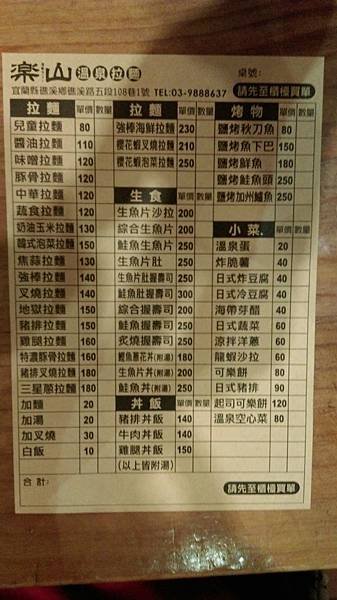 楽山 溫泉拉麵 桌號:
宜蘭縣礁溪鄉礁溪路五段108巷1號 TEL:03-9888637 請先至櫃檯買單
拉麵 單價 數量
兒童拉麵 80
醬油拉麵 110
味噌拉麵 120
豚骨拉麵 120
中華拉麵 120
蔬食拉麵 120
奶油玉米拉麵 130
韓式泡菜拉麵 150
焦蒜拉麵 130
強棒拉麵 140
叉燒拉麵 140
地獄拉麵 150
豬排拉麵 150
雞腿拉麵 160
特濃豚骨拉麵 160
豬排叉燒拉麵 180
三星蔥拉麵 180
加麵 20
加湯 20
加叉燒 30
白飯 10
拉麵 單價 數量
強棒海鮮拉麵 230
櫻花蝦叉燒拉麵 210
櫻花蝦泡菜拉麵 250
生食 單價 數量
生魚片沙拉 200
綜合生魚片 200
鮭魚生魚片 250
生魚片肚 250
生魚片肚握壽司 250
鮭魚肚握壽司 300
綜合握壽司 200
鮭魚握壽司 250
炙燒握壽司 250
鰹魚蔥花丼(附湯) 180
生魚片丼(附湯) 250
鮭魚丼(附湯) 250
丼飯 單價 數量
豬排丼飯 140
牛肉丼飯 140
雞腿丼飯 150
(以上皆附湯)
烤物 單價 數量
鹽烤秋刀魚 80
鹽烤魚下巴 150
鹽烤鮮魚 180
鹽烤鮭魚頭 250
鹽烤加州鱸魚 250
小菜 單價 數量
溫泉蛋 20
炸脆薯 40
日式炸豆腐 40
日式冷豆腐 40
海帶芽醋 40
日式蔬菜 60
涼拌洋蔥 60
龍蝦沙拉 60
可樂餅 80
日式豬排 90
起司可樂餅 120
溫泉空心菜 80
合計: 請先至櫃檯買單